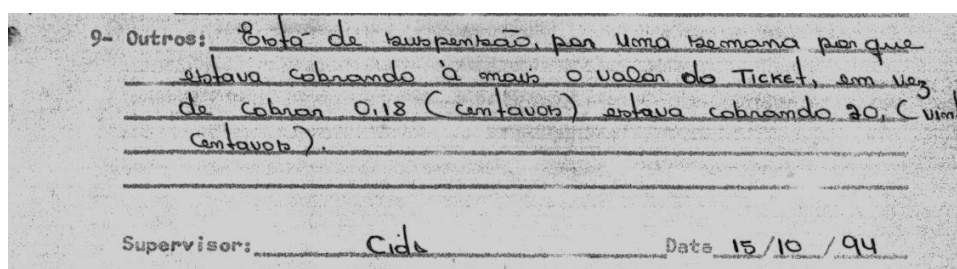 9- Outros: Está de suspensão, por uma semana por que
estava cobrando à mais o valor do Ticket, em vez
de cobrar 0,18 (centavos) estava cobrando 20, (vint
Centavos).
Supervisor: Cida Data 15/10/94